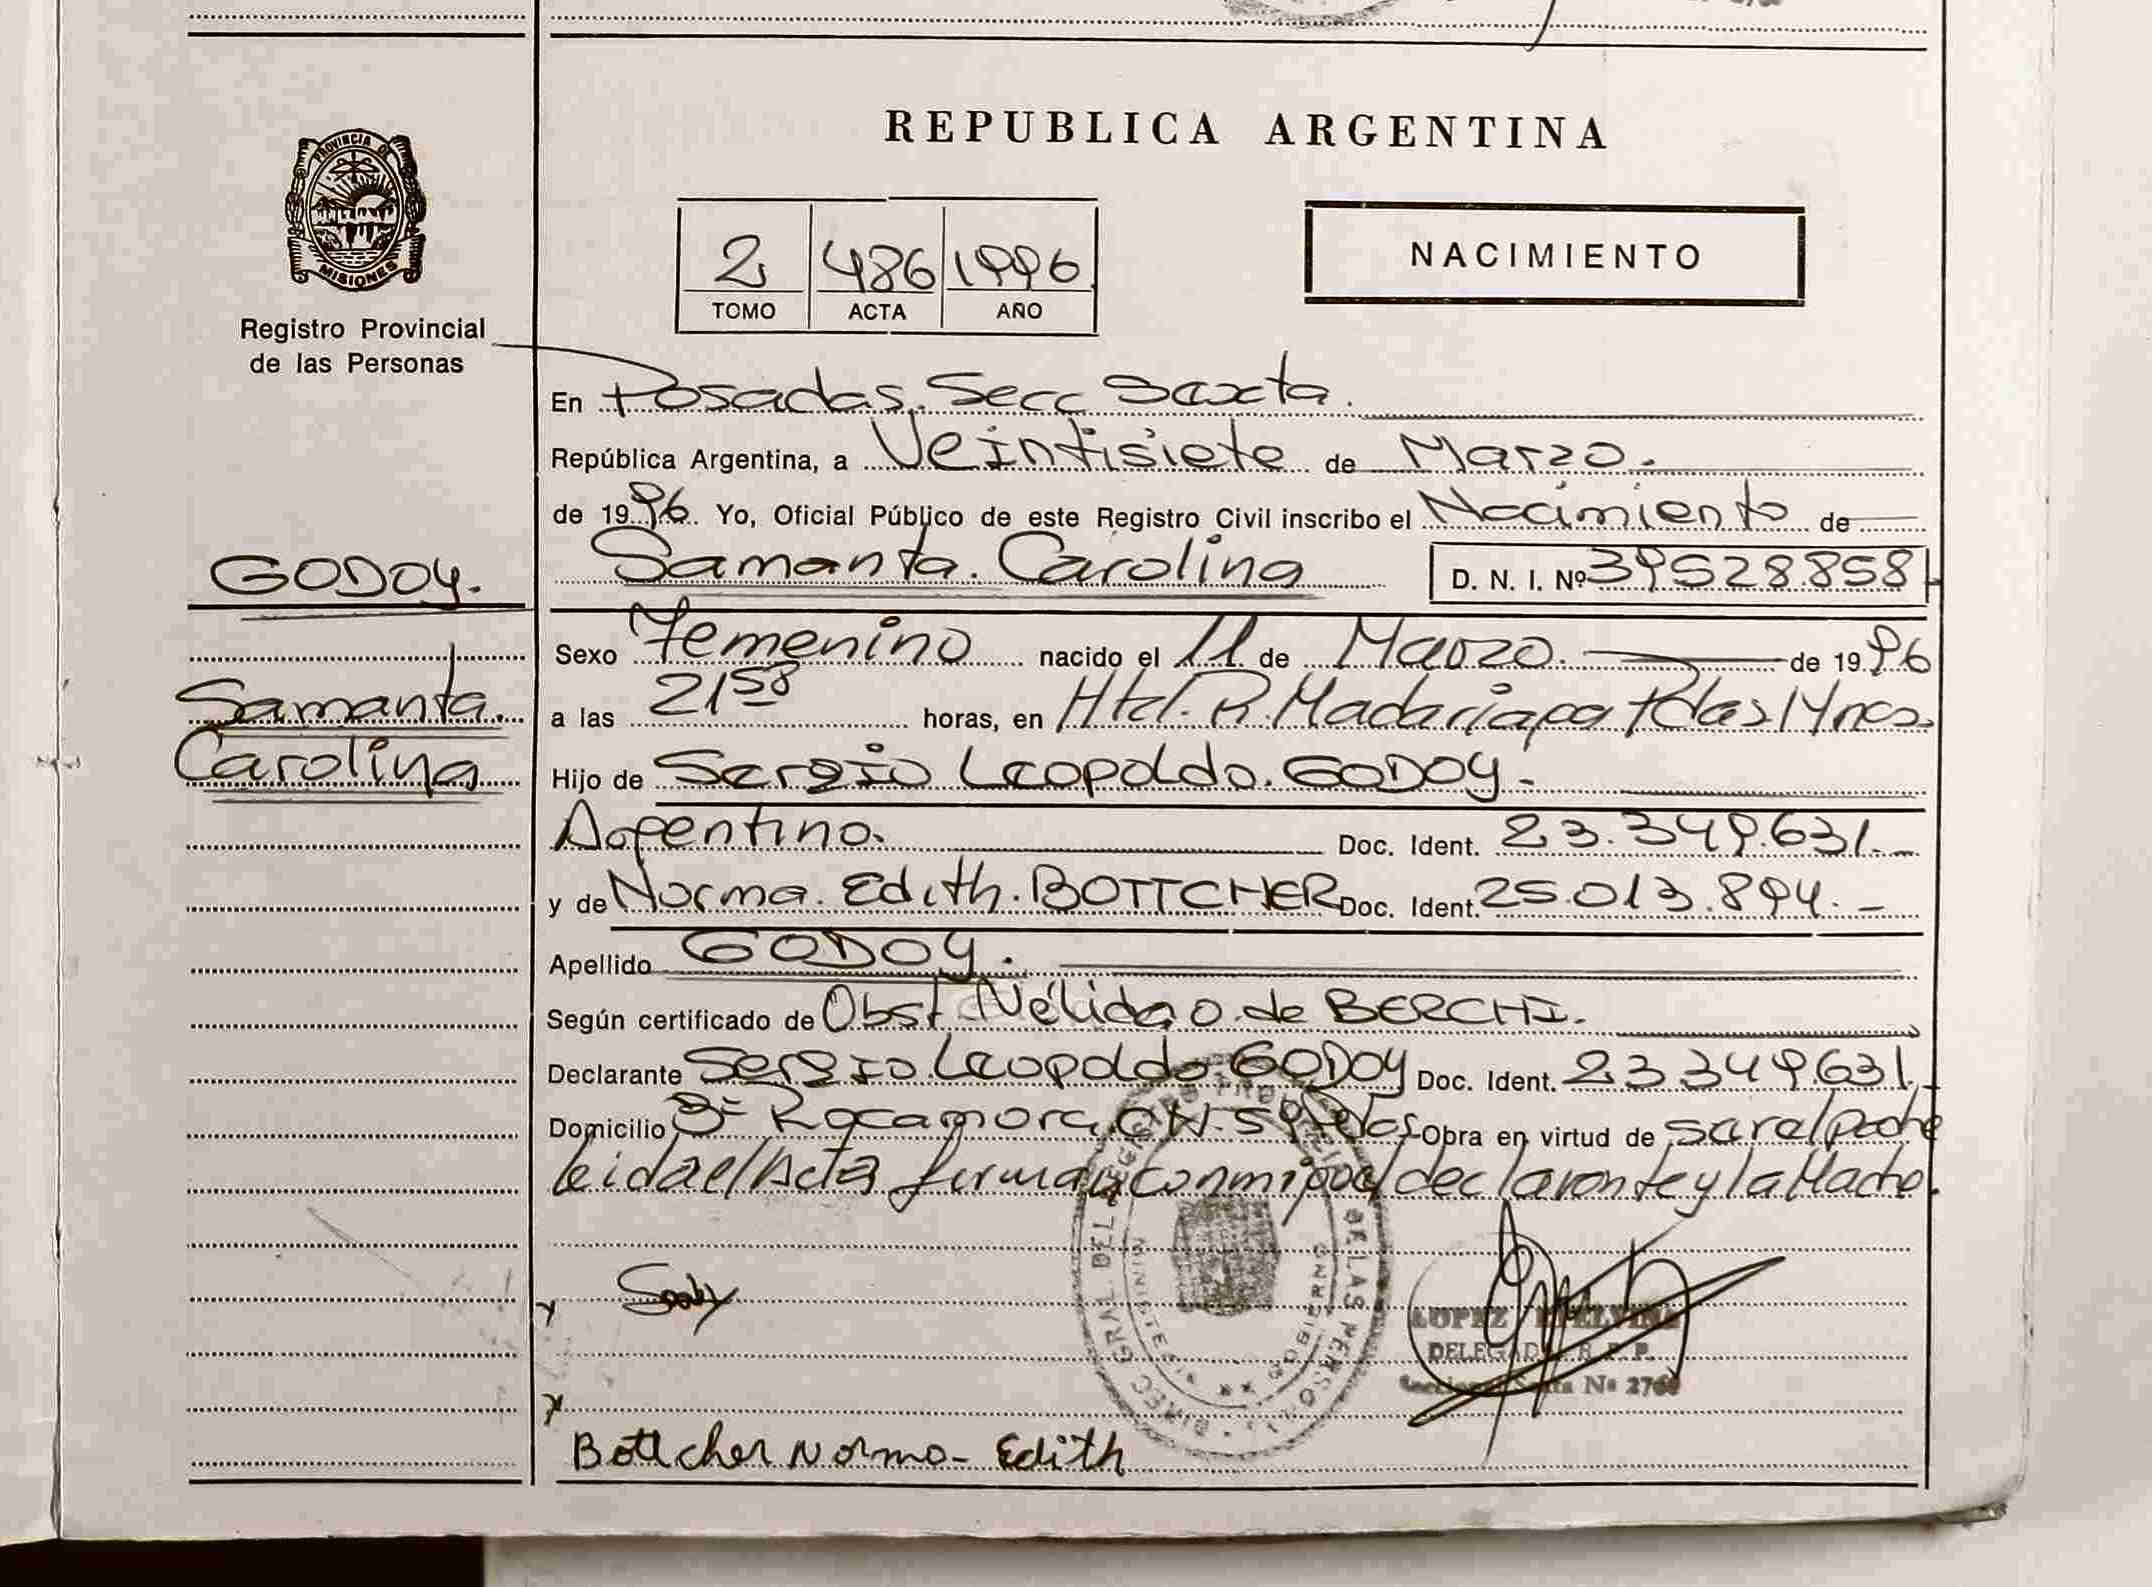 REPUBLICA ARGENTINA
PROVINCIA DE
MISIONES
Registro Provincial
de las Personas
2 486 1996
TOMO ACTA AÑO
NACIMIENTO
En Posadas. Secc Sexta.
República Argentina, a Veintisiete de Marzo.
de 1996 Yo, Oficial Público de este Registro Civil inscribo el Nacimiento de
GODOY.
Samanta. Carolina D. N. I. Nº 39528.858
Sexo Femenino nacido el 11 de Marzo. de 1996
Samanta.
Carolina
a las 21 58 horas, en Htal. R. Madariaga Pdas. Mnes.
Hijo de Sergio Leopoldo. GODOY.
Argentino. Doc. Ident. 23.349.631.-
y de Norma. Edith. BOTTCHER Doc. Ident. 25.013.894.-
Apellido GODOY.
Según certificado de Obst Nélida O. de BERCHI.
Declarante Sergio Leopoldo. GODOY Doc. Ident. 23.349.631.
Domicilio Bº Rocamora Obra en virtud de ser el padre
leida el Acta firman conmigo el declarante y la Madre.
DIREC. GRAL. DEL REGISTRO PROVINCIAL DE LAS PERSONAS
GOBIERNO
LOPEZ
DELEGADA R. P. P.
Seccional Sexta Nº 2760
Bottcher Norma - Edith